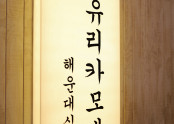 유리카모메
해운대